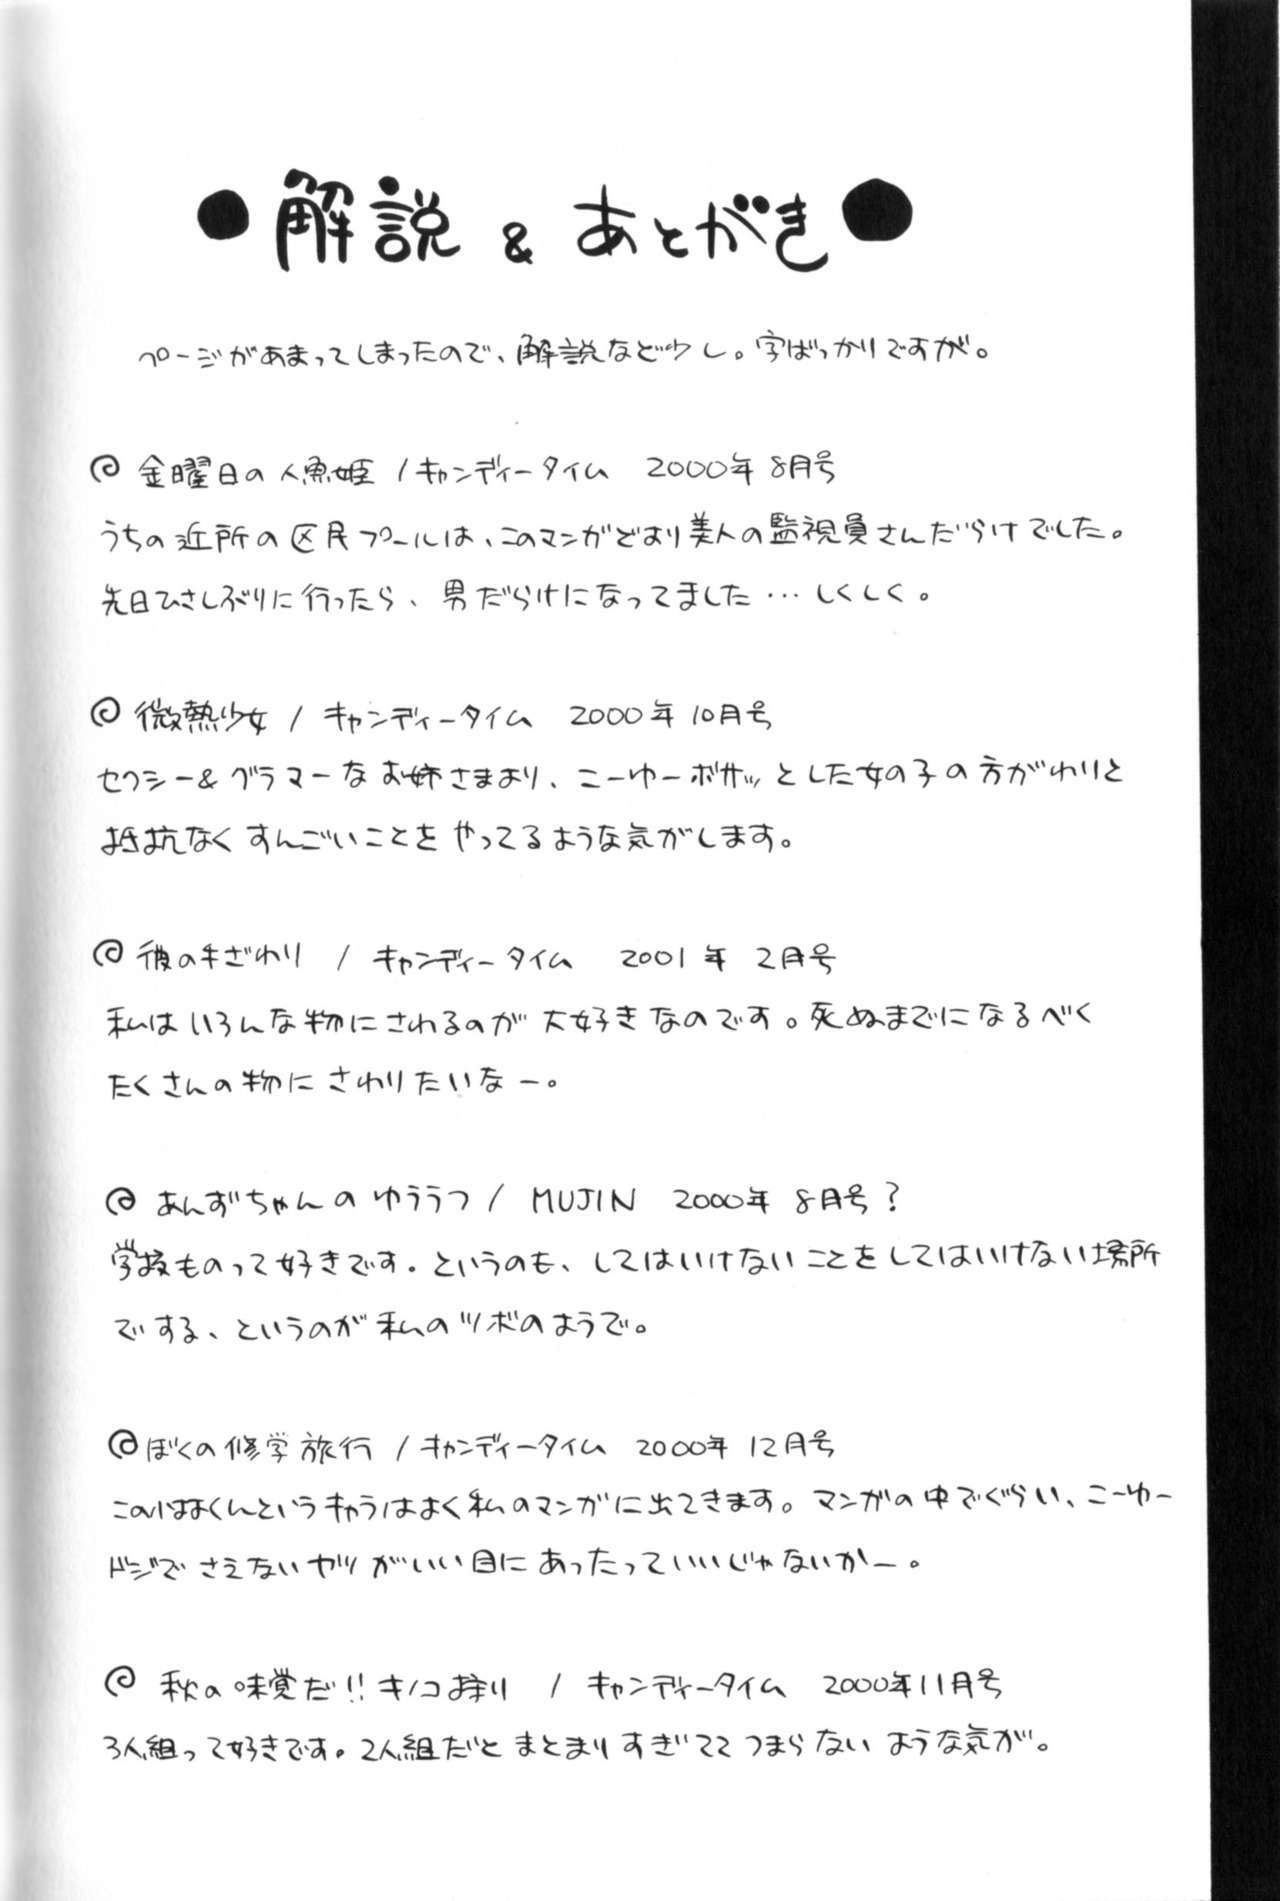 ●解説 & あとがき●
ページがあまってしまったので、解説など少し。字ばっかりですが。
金曜日の人魚姫 / キャンディータイム 2000年 8月号
うちの近所の区民プールは、このマンガどおり美人の監視員さんだらけでした。
先日ひさしぶりに行ったら、男だらけになってました…しくしく。
微熱少女 / キャンディータイム 2000年 10月号
セクシー&グラマーなお姉さまより、こーゆーボサッとした女の子の方がわりと
抵抗なくすんごいことをやってるような気がします。
彼の手ざわり / キャンディータイム 2001年 2月号
私はいろんな物にさわるのが大好きなのです。死ぬまでになるべく
たくさんの物にさわりたいなー。
あんずちゃんのゆううつ / MUJIN 2000年 8月号?
学校ものって好きです。というのも、してはいけないことをしてはいけない場所
でする、というのが私のツボのようで。
ぼくの修学旅行 / キャンディータイム 2000年 12月号
このはよくんというキャラはよく私のマンガに出てきます。マンガの中でぐらい、こーゆー
ドジでさえないヤツがいい目にあったっていいじゃないかー。
秋の味覚だ!! キノコ狩り / キャンディータイム 2000年11月号
3人組って好きです。2人組だとまとまりすぎててつまらないような気が。